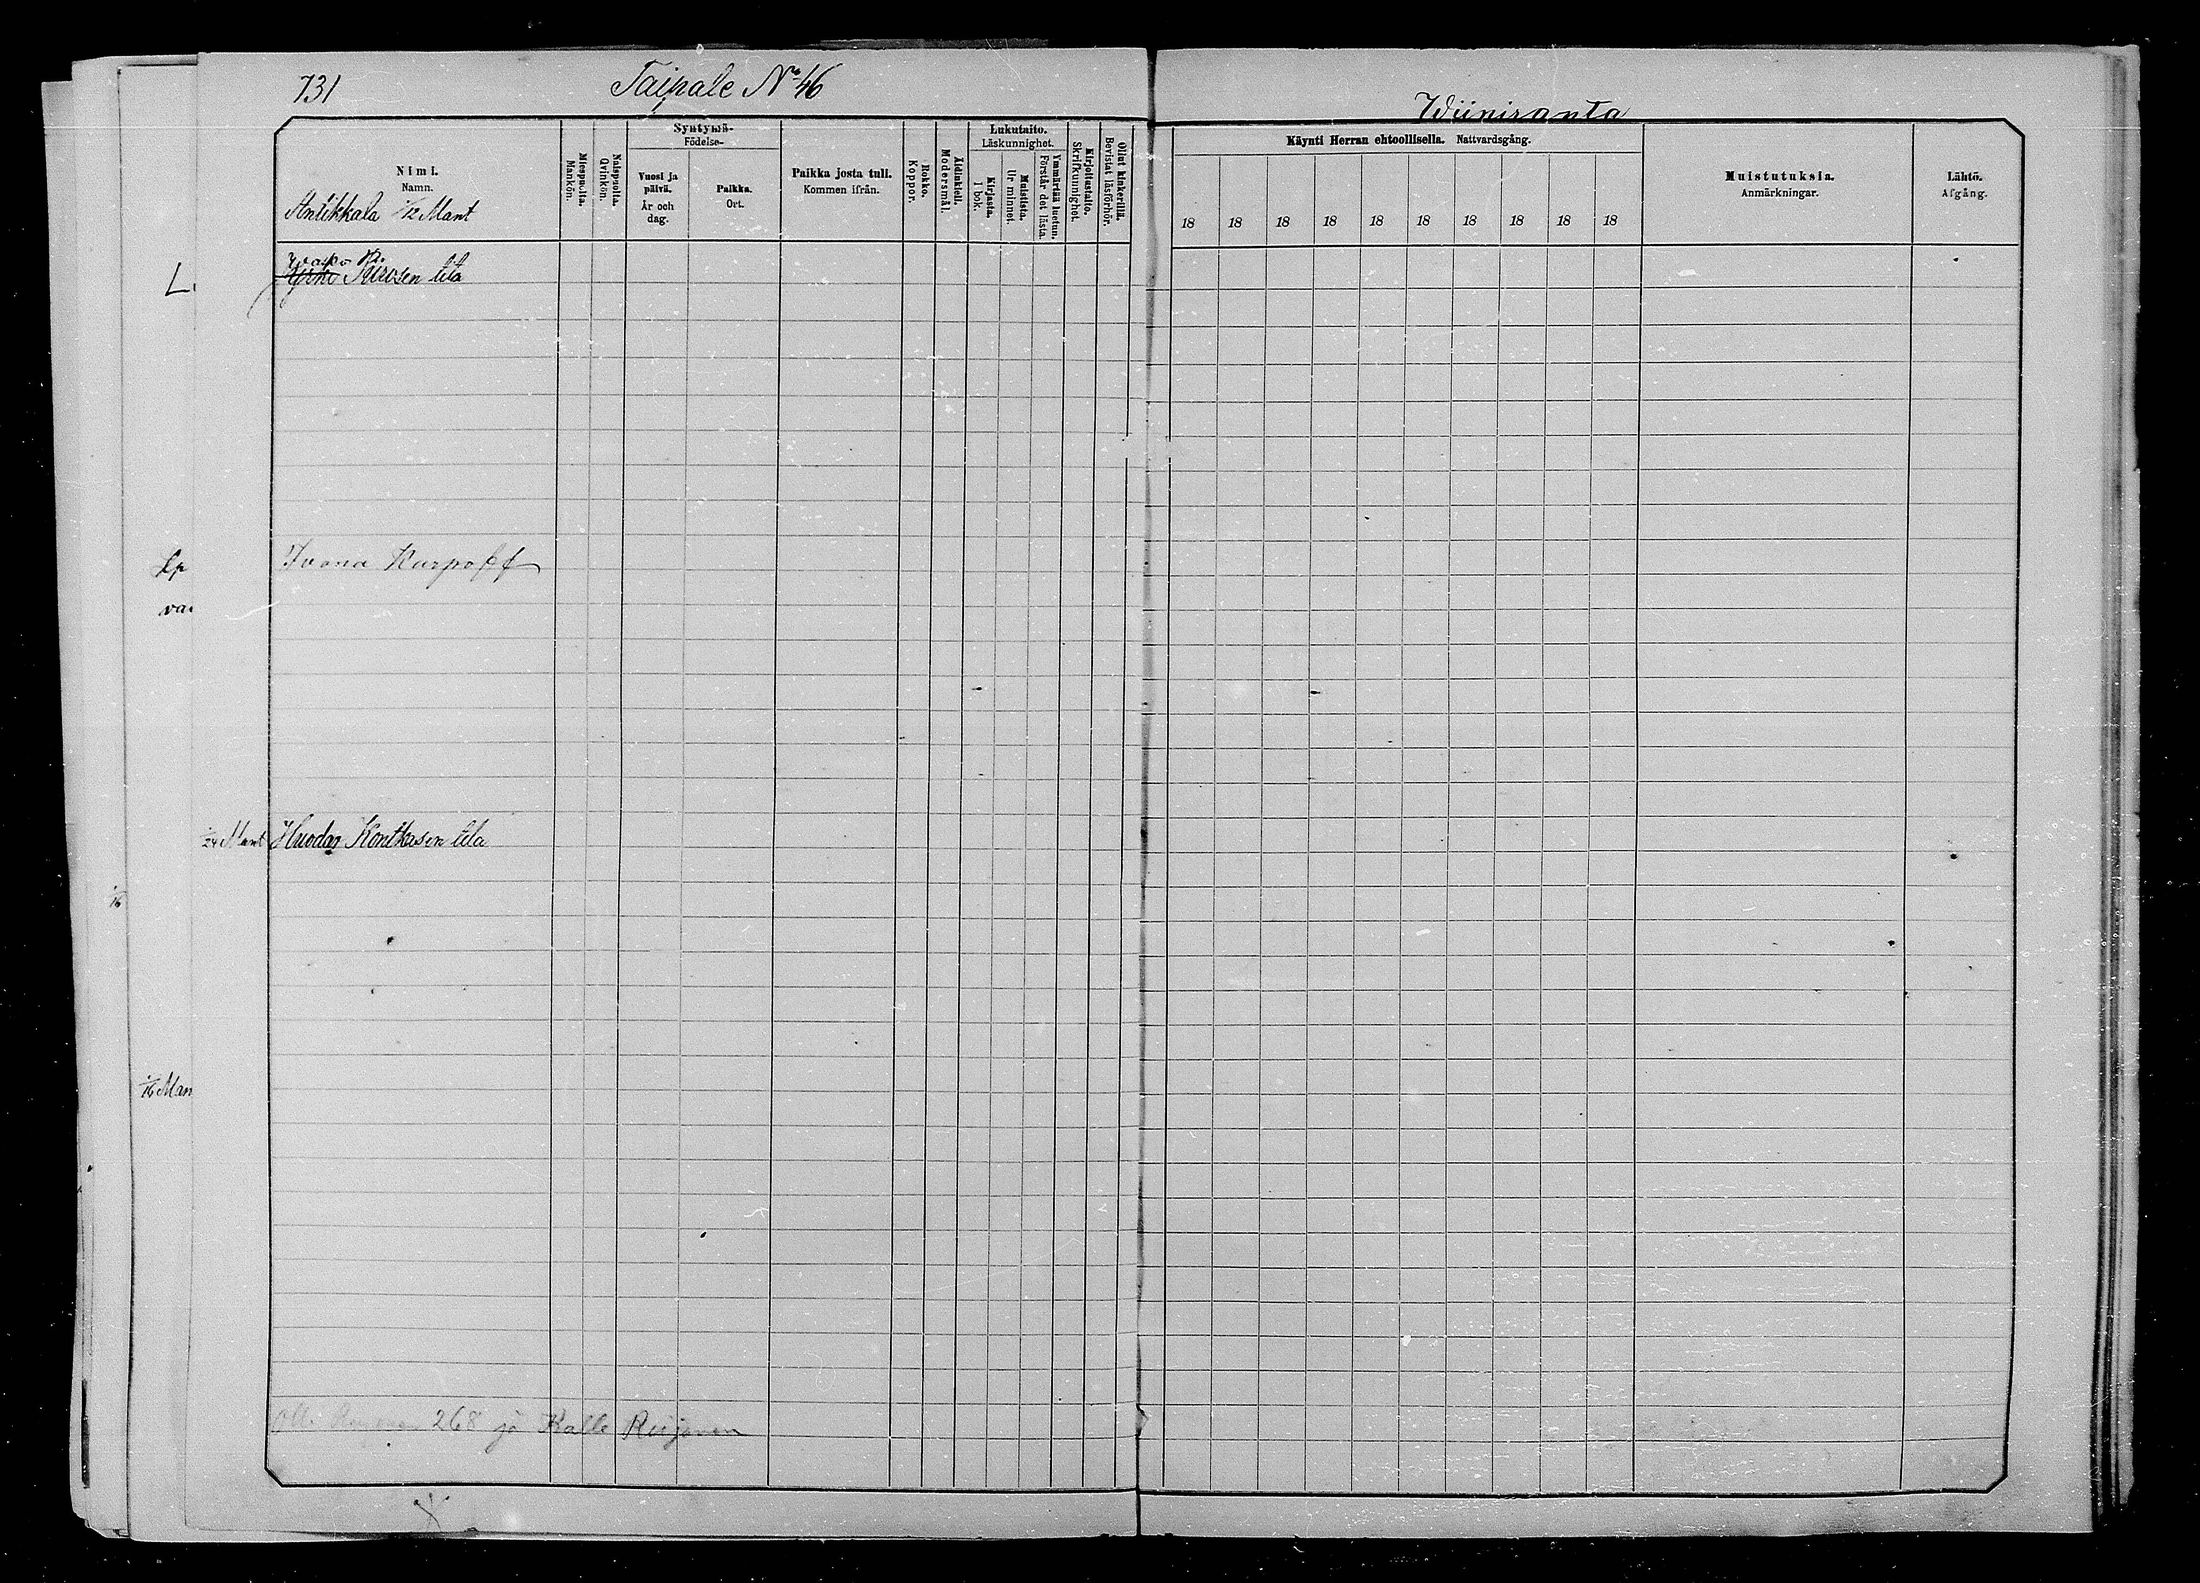 731
Taipale No 46
Wiiniranta
Nimi.
Namn.
Antikkala 1/12 Mant
Miespuolia.
Mankön.
Naispuolia.
Qvinkön.
Syntymä-
Födelse-
Vuosi ja päivä.
År och dag.
Paikka.
Ort.
Paikka josta tuli.
Kommen ifrån.
Rokko.
Koppor.
Äidinkieli.
Modersmål.
Lukutaito.
Läskunnighet.
Kirjasta.
I bok.
Muistista.
Ur minnet.
Ymmärtää luetun.
Förstår det lästa.
Kirjoitustaito.
Skrifkunnighet.
Ollut kinkerillä.
Bevistat läsförhör.
Käynti Herran ehtoollisella. Nattvardsgång.
18 18 18 18 18 18 18 18 18 18
Muistutuksia.
Anmärkningar.
Lähtö.
Afgång.
L.
tila
Lp
Ivana Karpoff
va
1/24 Mant Huodar Konttosen tila
1/16
1/16 Man
268 jo Kalle